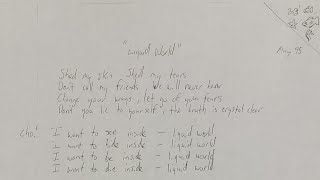 "Liquid World"
May 95
Shed my skin Shed my tears
Don't call my friends We will never know
Change your ways, let go of your fears
Don't you lie to yourself, the truth is crystal clear
Cho:
I want to see inside - liquid world
I want to hide inside - liquid world
I want to be inside - liquid world
I want to die inside - liquid world